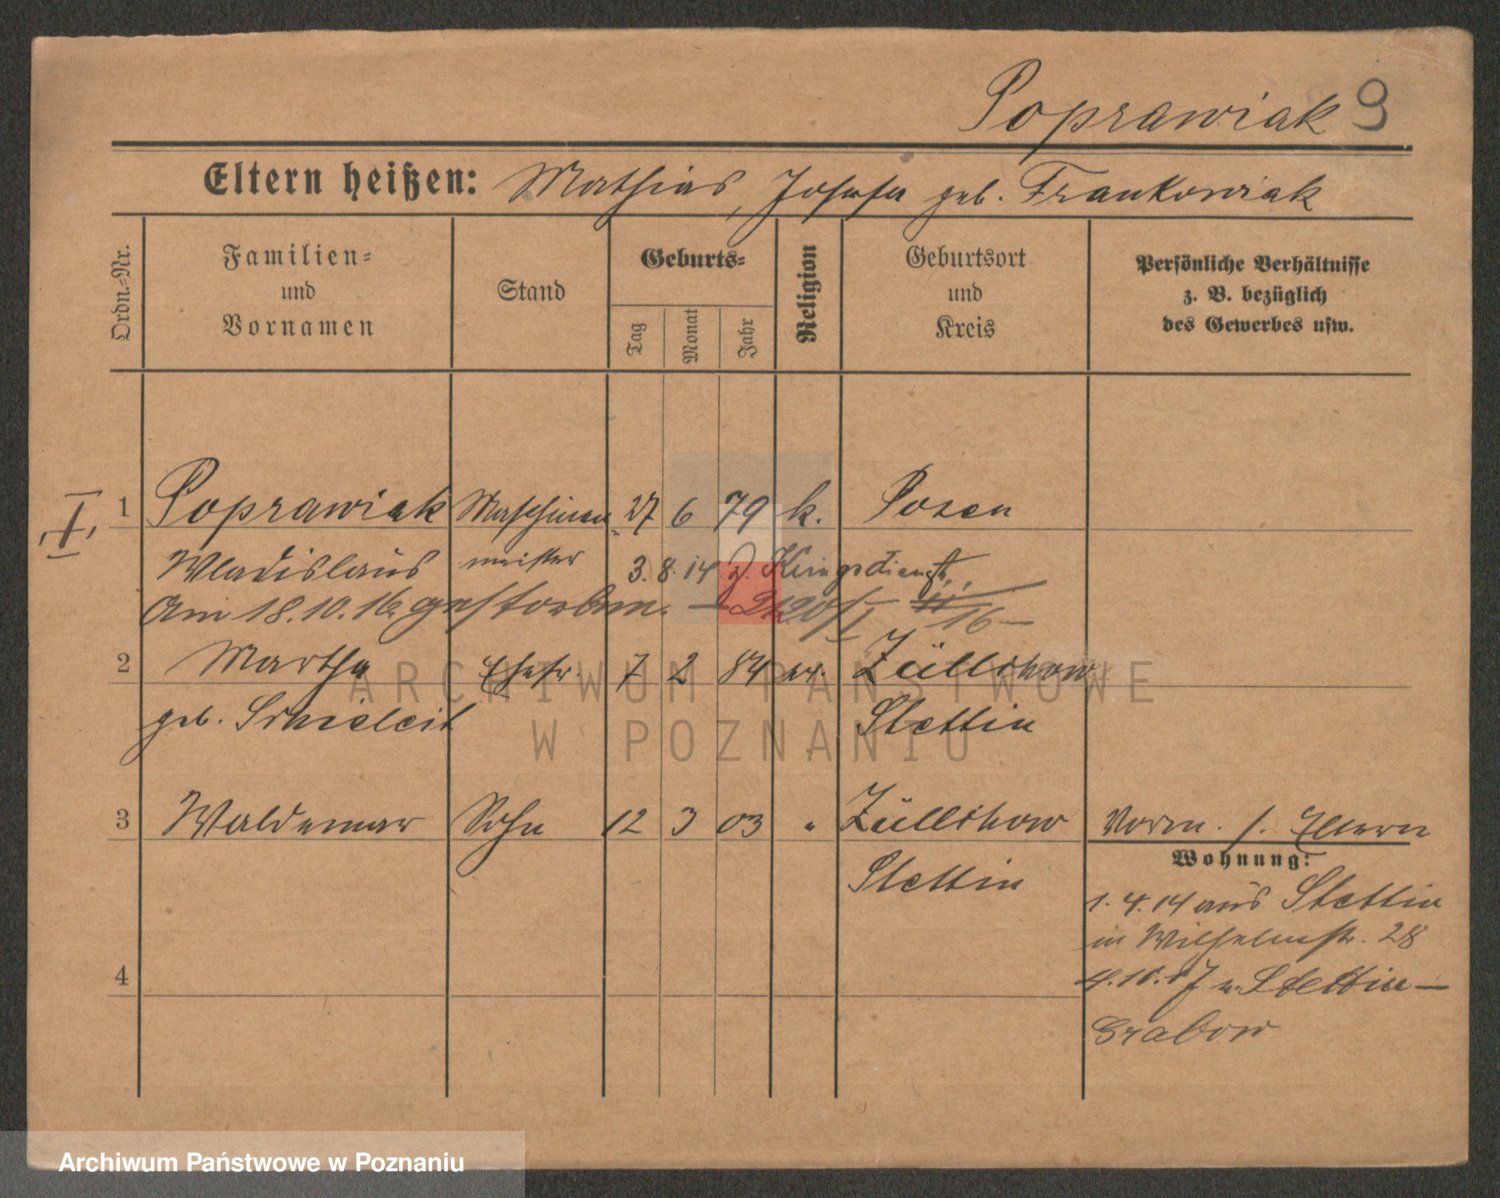 Poprawiak 9
Eltern heißen: Mathias, Josefa geb. Frankowiak
Ordn.-Nr.
Familien- und Vornamen
Stand
Geburts-
Tag
Monat
Jahr
Religion
Geburtsort und Kreis
Persönliche Verhältnisse
z. B. bezüglich
des Gewerbes usw.
1 Poprawiak Maschinen- 27 6 79 k. Posen
Wladislaus meister 3. 8. 14 z. Kriegsdienst
Am 18.10.16 gestorben. — 2120/I 16 —
2 Martha Ehefr. 7 2 84 ev. Züllchow
geb. Stettin
3 Waldemar Sohn 12 3 03 " Züllchow Vorm. s. Eltern
Stettin
Wohnung:
1. 4. 14 aus Stettin
in Wilhelmstr. 28
4. 10. 17 n. Stettin —
Grabow
4
ARCHIWUM PAŃSTWOWE
W POZNANIU
Archiwum Państwowe w Poznaniu